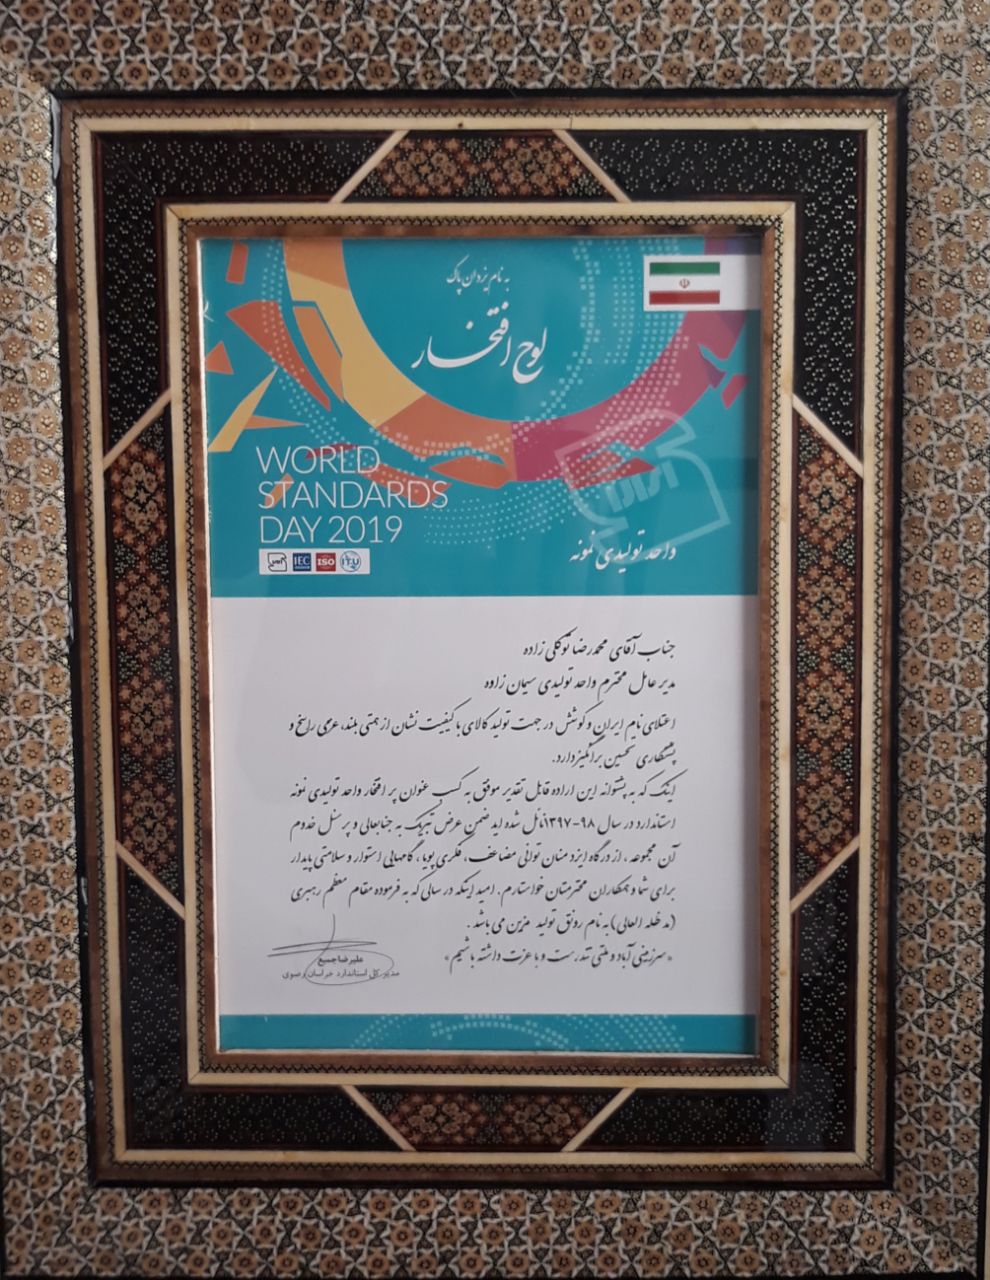 به نام یزدان پاک
لوح افتخار
WORLD
STANDARDS
DAY 2019
IEC ISO ITU
واحد تولیدی نمونه
جناب آقای محمدرضا توکلی زاده
مدیر عامل محترم واحد تولیدی سیمان زاوه
اعتلای نام ایران و کوشش در جهت تولید کالای با کیفیت نشان از همتی بلند، عزمی راسخ و
پشتکاری تحسین برانگیز دارد.
اینک که به پشتوانه این اراده قابل تقدیر موفق به کسب عنوان پر افتخار واحد تولیدی نمونه
استاندارد در سال ۹۸-۱۳۹۷ نائل شده اید ضمن عرض تبریک به جنابعالی و پرسنل خدوم
آن مجموعه، از درگاه ایزد منان توانی مضاعف، فکری پویا، گامهایی استوار و سلامتی پایدار
برای شما و همکاران محترمتان خواستارم. امید اینکه در سالی که به فرموده مقام معظم رهبری
(مد ظله العالی) به نام رونق تولید مزین می باشد.
«سرزمینی آباد و ملتی تندرست و با عزت داشته باشیم»
علیرضا جمیع
مدیر کل استاندارد خراسان رضوی